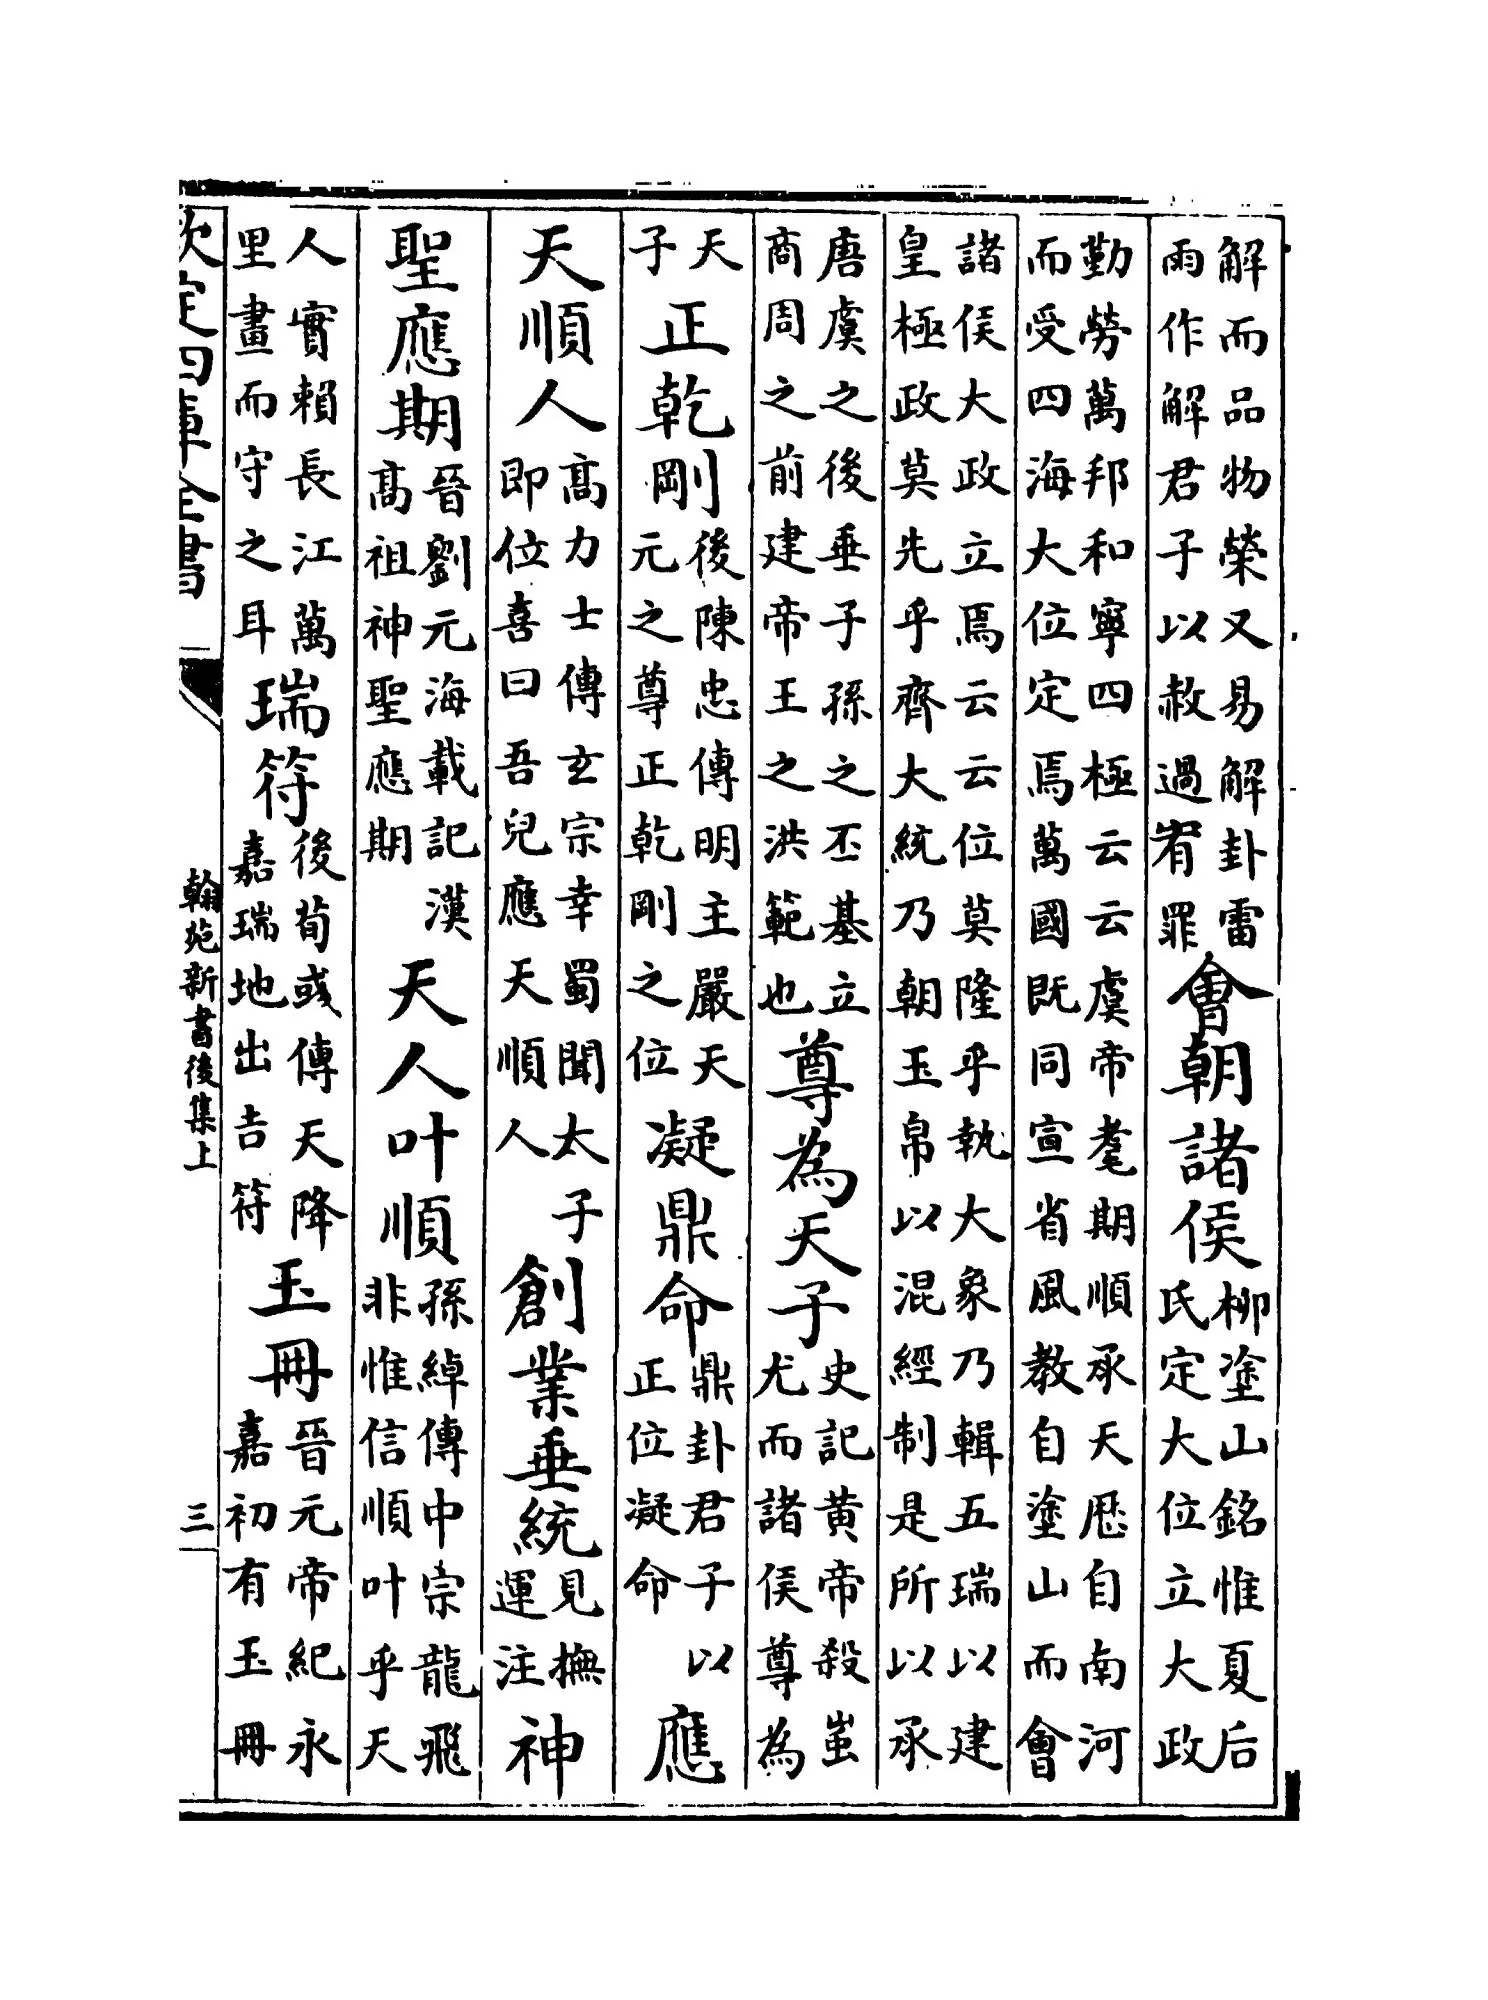 解而品物榮又易解卦雷雨作解君子以赦過宥罪會朝諸侯柳塗山銘惟夏后氏定大位立大政
勤勞萬邦和寧四極云云虞帝耄期順承天厯自南河而受四海大位定焉萬國既同宣省風教自塗山而會
諸侯大政立焉云云位莫隆乎執大象乃輯五瑞以建皇極政莫先乎齊大統乃朝玉帛以混經制是所以承
唐虞之後垂子孫之丕基立商周之前建帝王之洪範也尊為天子史記黄帝殺蚩尤而諸侯尊為
天子正乾剛後陳忠傳明主嚴天元之尊正乾剛之位凝鼎命鼎卦君子以正位凝命應
天順人高力士傳玄宗幸蜀聞太子即位喜曰吾兒應天順人創業垂統見撫運注神
聖應期晉劉元海載記漢高祖神聖應期天人叶順孫綽傳中宗龍飛非惟信順叶乎天
人實賴長江萬里畫而守之耳瑞符後荀彧傳天降嘉瑞地出吉符玉冊晉元帝紀永嘉初有玉冊
欽定四庫全書
翰苑新書後集上
三